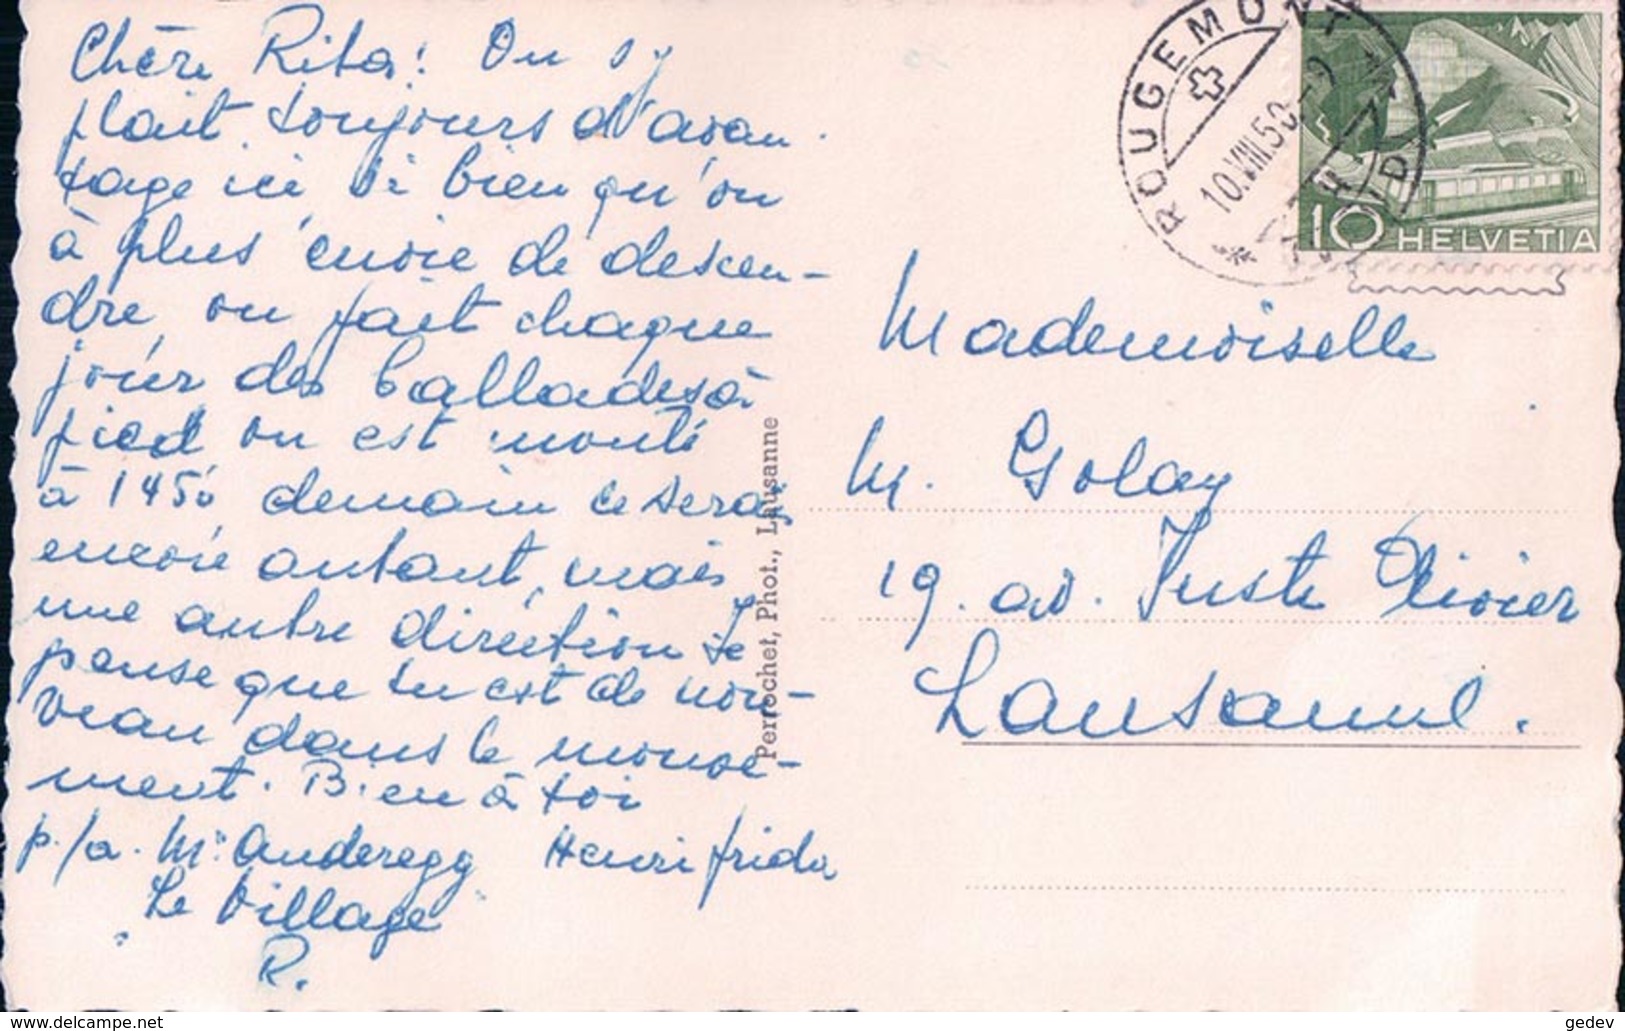 Chère Rita! On s'y
plait toujours d'avan
tage ici si bien qu'on
à plus envie de descen-
dre, on fait chaque
jour des balladesà
pied on est monté
à 1450 demain ce sera
encore autant, mais
une autre direction Je
pense que tu est de nou-
veau dans le mouve-
ment. Bien à toi
p./a. Mr Anderegg Henri frida
Le Village
R.
Perrochet, Phot., Lausanne
ROUGEMONT
10.VIII.50
10 HELVETIA
Mademoiselle
M. Golay
19. av. Juste Olivier
Lausanne.
gedev